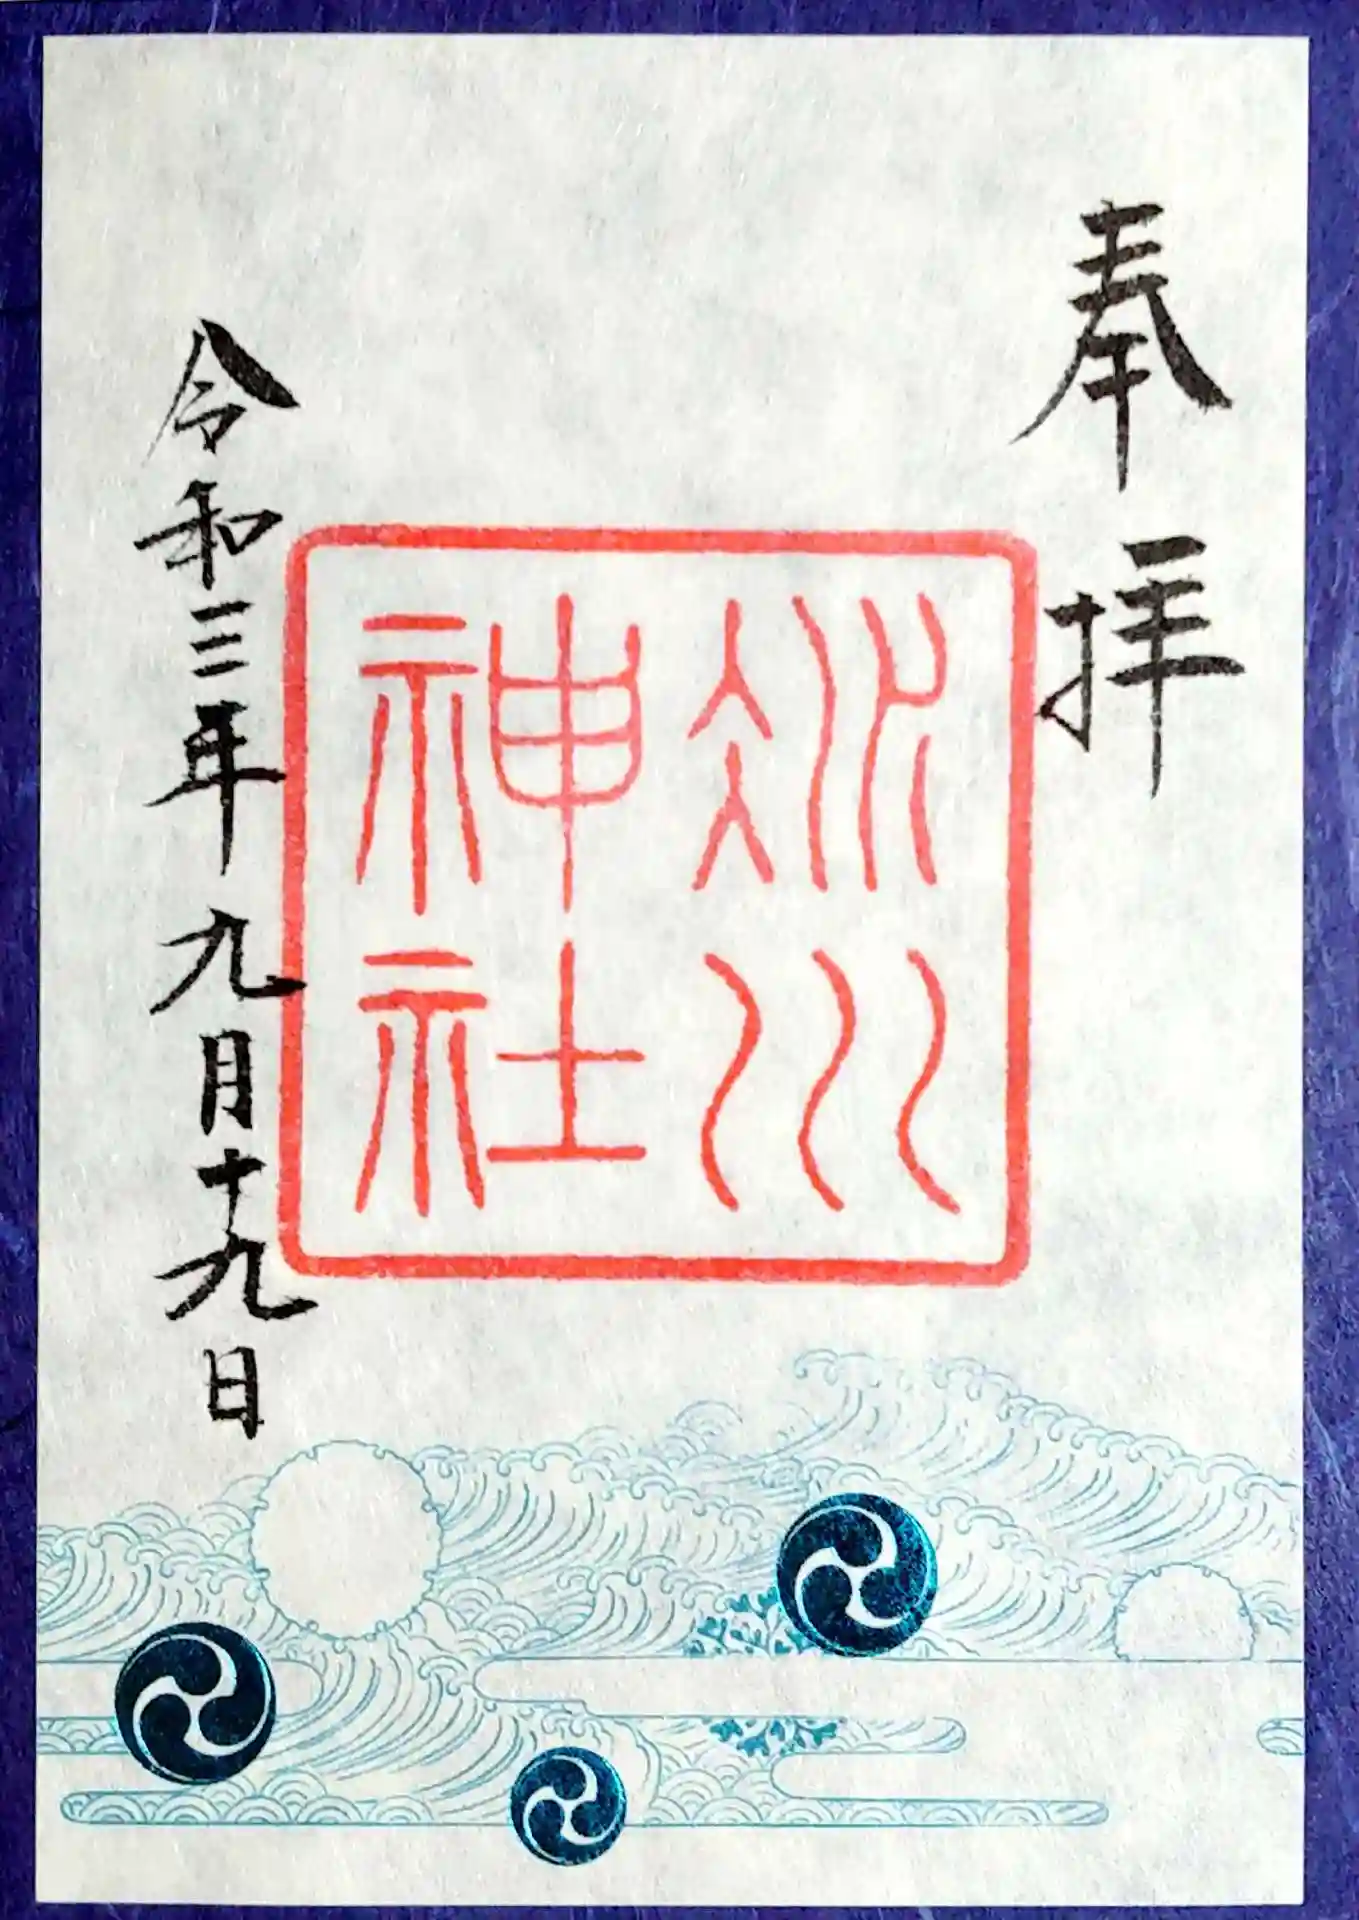 奉拝
冰川
神社
令和三年九月十九日